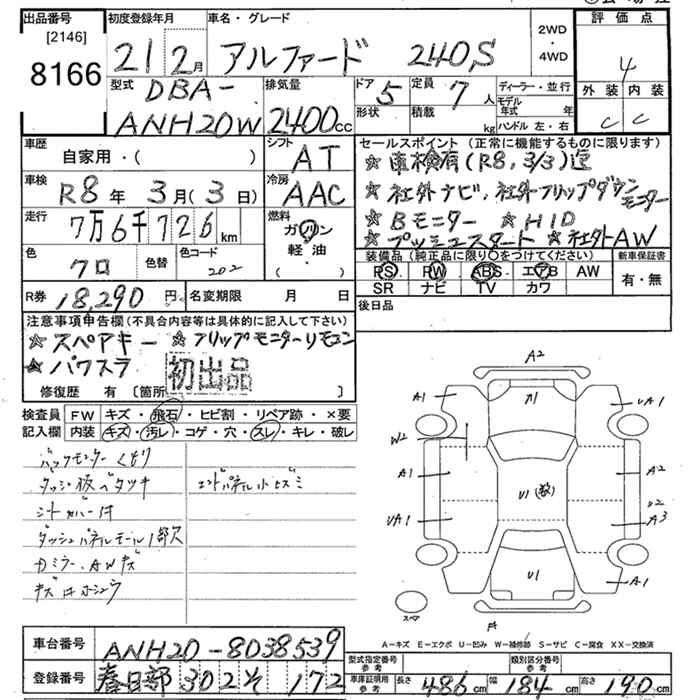 出品番号 [2146] 8166
初度登録年月 21 2月
車名・グレード アルファード 240S
2WD・4WD
評価点 4
外装 内装
C C
型式 DBA-ANH20W
排気量 2400cc
ドア 5 形状
定員 7人 積載 kg
ディーラー・並行
モデル年式 年
ハンドル 左・右
車歴 自家用・( )
シフト AT
車検 R8年 3月(3日)
冷房 AAC
走行 7万6千126km
燃料 ガソリン 軽油・( )
色 クロ 色替 色コード 202
R券 18,290円 名変期限 月 日
セールスポイント (正常に機能するものに限ります)
☆車検有(R8,3/3)迄
☆社外ナビ、社外フリップダウンモニター
☆Bモニター ☆HID
☆プッシュスタート ☆社外AW
装備品 (純正品に限り○をつけてください) 新車保証書
PS PW ABS エアB AW 有・無
SR ナビ TV カワ
後日品
注意事項申告欄(不具合内容等は具体的に記入して下さい)
☆スペアキー ☆フリップモニターリモコン
☆パワスラ 初出品
修復歴 有 [箇所 ]
検査員 FW キズ・飛石・ヒビ割・リペア跡・×要
記入欄 内装 キズ・汚レ・コゲ・穴・スレ・キレ・破レ
バックモニターくもり
ダッシュ板ベタツキ エンドパネル小ヒズミ
シートカバー付
ダッシュパネルモール1部欠
Dミラー、AWキズ
A2
A1 A1 UA1
W2
A1 U1 A2
U2
UA1 A3
U1 A1
スペア
A-キズ E-エクボ U-凹み W-補修跡 S-サビ C-腐食 XX-交換済
車台番号 ANH20-8038539
登録番号 春日部 302 そ 172
型式指定番号 参考 類別区分番号 参考
車庫証明用 参考 長さ 486cm 幅 184cm 高さ 190cm